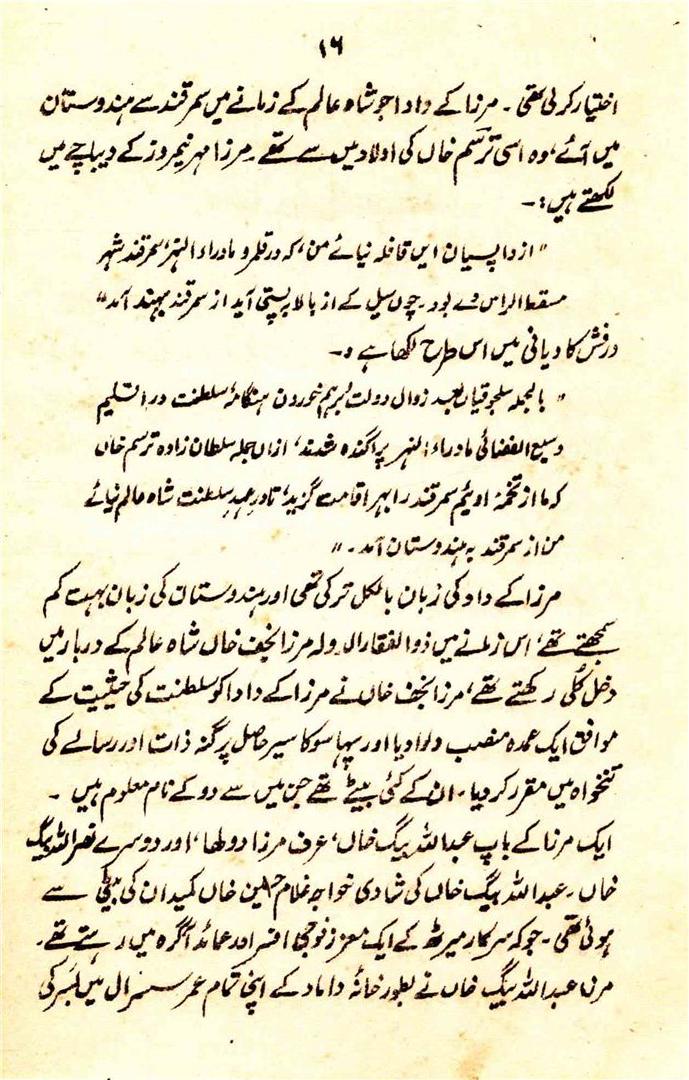 ۱۶
اختیار کرلی تھی ۔ مرزا کے دادا جو شاہ عالم کے زمانے میں سمرقند سے ہندوستان
میں آئے، وہ اسی ترسم خاں کی اولاد میں سے تھے ۔ مرزا مہر نیمروز کے دیباچے میں
لکھتے ہیں :۔
" از واپسیان ایں قافلہ نیائے من، کہ در قلمرو ماوراء النہر، سمرقند شہر
مسقط الراس وے بود ۔ چوں سیل کے از بالا بہ پستی آید از سمرقند بہند آمد "
درفش کاویانی میں اس طرح لکھا ہے :۔
" بالجملہ سلجوقیاں بعد زوال دولت و برہم خوردن ہنگامۂ سلطنت در اقلیم
وسیع الفضائی ماوراء النہر پراگندہ شدند، ازاں جملہ سلطان زادہ ترسم خاں
کہ ما از تخمۂ اوئیم سمرقند را بہر اقامت گزید، تا در عہد سلطنت شاہ عالم نیائے
من از سمرقند بہ ہندوستان آمد ۔ "
مرزا کے داد کی زبان بالکل ترکی تھی اور ہندوستان کی زبان بہت کم
سمجھتے تھے، اس زمانے میں ذوالفقار الدولہ مرزا نجف خاں شاہ عالم کے دربار میں
دخل کلی رکھتے تھے، مرزا نجف خاں نے مرزا کے دادا کو سلطنت کی حیثیت کے
موافق ایک عمدہ منصب دلوا دیا اور پہاسو کا سیر حاصل پرگنہ ذات اور رسالے کی
تنخواہ میں مقرر کر دیا ۔ ان کے کئی بیٹے تھے جن میں سے دو کے نام معلوم ہیں ۔
ایک مرزا کے باپ عبداللہ بیگ خاں، عرف مرزا دولھا، اور دوسرے نصر اللہ بیگ
خاں ۔ عبداللہ بیگ خاں کی شادی خواجہ غلام حسین خاں کمیدان کی بیٹی سے
ہوئی تھی ۔ جو کہ سرکار میرٹھ کے ایک معزز فوجی افسر اور عمائد آگرہ میں رہتے تھے ۔
مرزا عبداللہ بیگ خاں نے بطور خانۂ داماد کے اپنی تمام عمر سسرال میں بسر کی